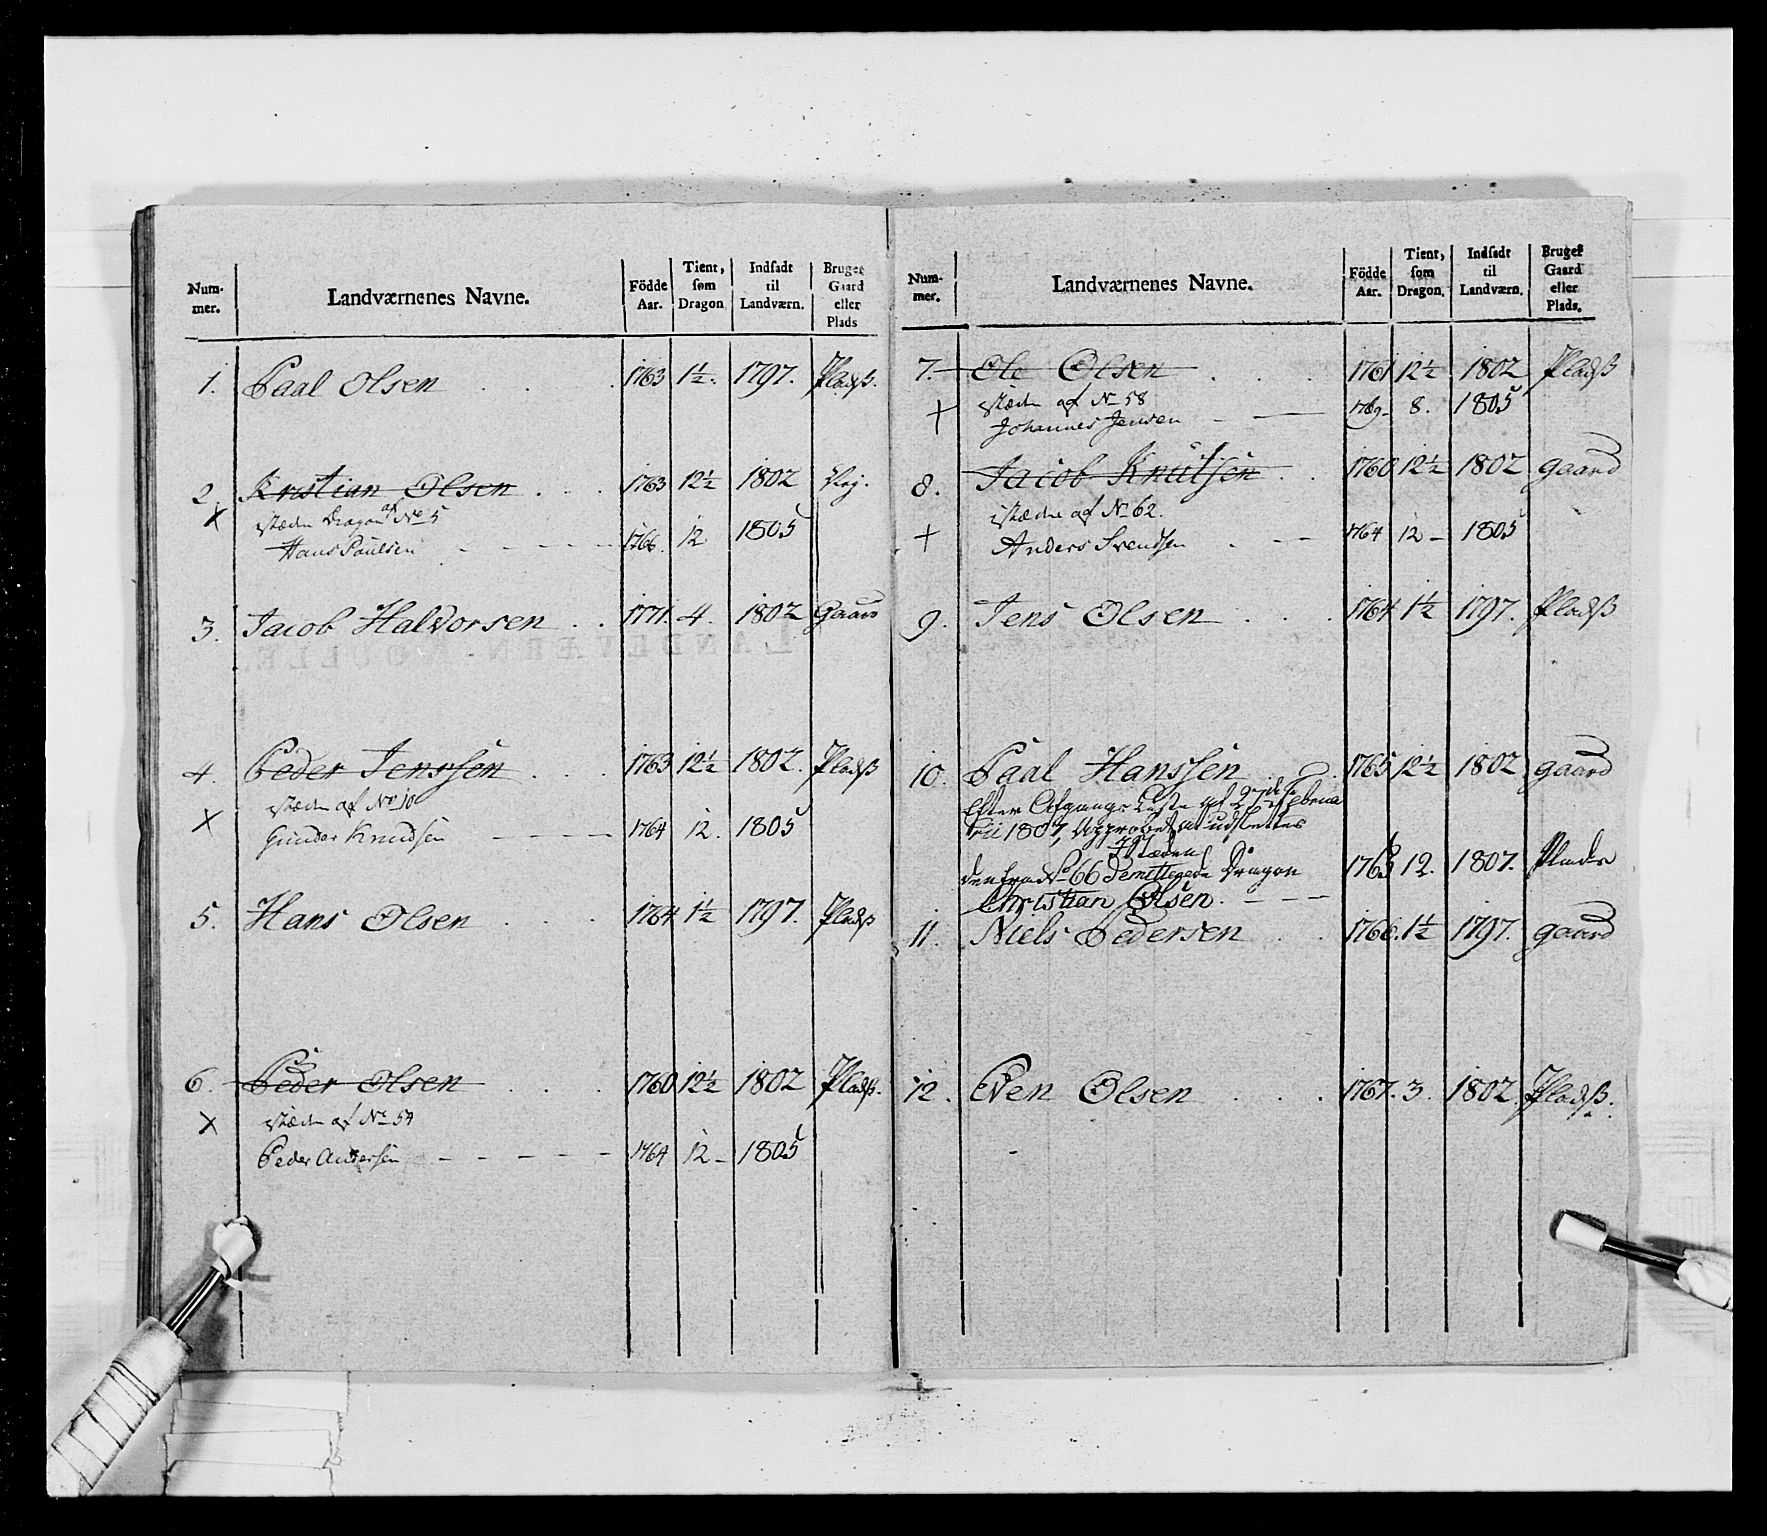 Num-mer. Landværnenes Navne. Födde Aar. Tient, som Dragon Indsadt til Landværn. Bruger Gaard eller Plads
1. Paal Olsen . . . 1763 1½. 1797. Pladß.
2. Kristian Olsen . . . 1763 12½ 1802 Sög.
X istæden Dragon af No 5
Hans Paulsen - - - - 1766. 12 1805
3. Jacob Halvorsen . . 1771. 4. 1802 Gaard
4. Peder Jenssen . . . 1763 12½ 1802. Pladß
istæden af No 10
X Gunder Knudsen - - - - 1764 12. 1805
5. Hans Olsen . . . 1764 1½ 1797. Pladß
6. Peder Olsen . . . 1760 12½ 1802 Pladß.
X istæden af No 59
Peder Andersen - - - - - 1764 12 - 1805
Num-mer. Landværnenes Navne. Födde Aar. Tient, som Dragon. Indsadt til Landværn. Bruger Gaard eller Plads.
7. Ole Olsen . . . 1761 12½ 1802 Pladß
istæden af No 58
+ Johannes Jensen - - 1769 - 8. 1805
8. Jacob Knutsen . . 1760 12½ 1802 gaard
istæden af No 62.
+ Anders Svendsen . - - 1764 12 - 1805
9. Jens Olsen . . . 1764 1½ 1797. Pladß
10. Paal Hanssen . . . 1765 12½ 1802 gaard
Efter Afgangs Liste af 27de Februa
rii 1807, Approbet at udsættes
Istæden
den fra No 66 Demitterede Dragon 1763 12. 1807. Plads
Christian Olsen. - - -
11. Niels Pedersen . . 1766. 1½ 1797. gaard
12. Even Olsen . . . 1767. 3. 1802. Pladß.